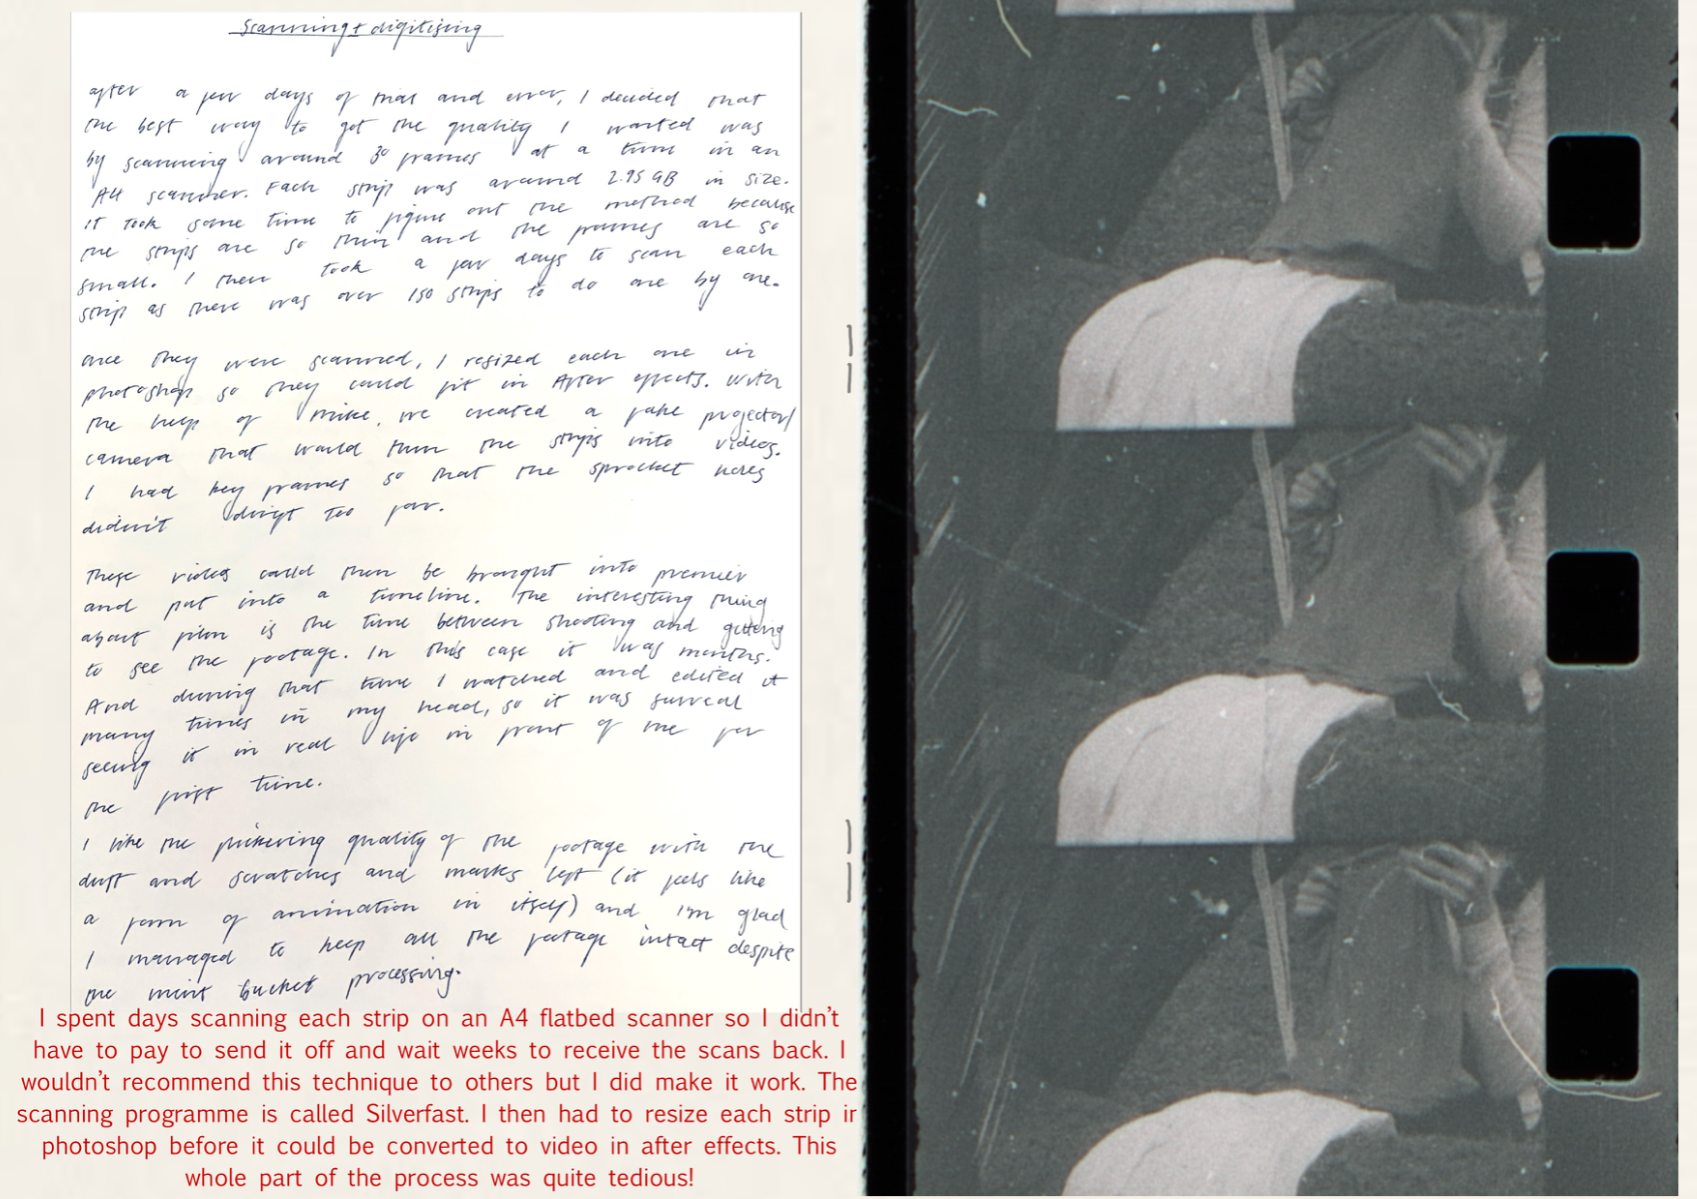 Scanning + digitising
after a few days of trial and error, I decided that
the best way to get the quality I wanted was
by scanning around 30 frames at a time in an
A4 scanner. Each strip was around 2.95 GB in size.
it took some time to figure out the method because
the strips are so thin and the frames are so
small. I then took a few days to scan each
strip as there was over 150 strips to do one by one.
once they were scanned, I resized each one in
photoshop so they could fit in After effects. With
the help of mike, we created a fake projector/
camera that would turn the strips into videos.
I had key frames so that the sprocket holes
didn't drift too far.
These videos could then be brought into premier
and put into a timeline. The interesting thing
about film is the time between shooting and getting
to see the footage. In this case it was months.
And during that time I watched and edited it
many times in my head, so it was surreal
seeing it in real life in front of me for
the first time.
I like the flickering quality of the footage with the
dust and scratches and marks left (it feels like
a form of animation in itself) and I'm glad
I managed to keep all the footage intact despite
the bucket processing.
I spent days scanning each strip on an A4 flatbed scanner so I didn't
have to pay to send it off and wait weeks to receive the scans back. I
wouldn't recommend this technique to others but I did make it work. The
scanning programme is called Silverfast. I then had to resize each strip in
photoshop before it could be converted to video in after effects. This
whole part of the process was quite tedious!